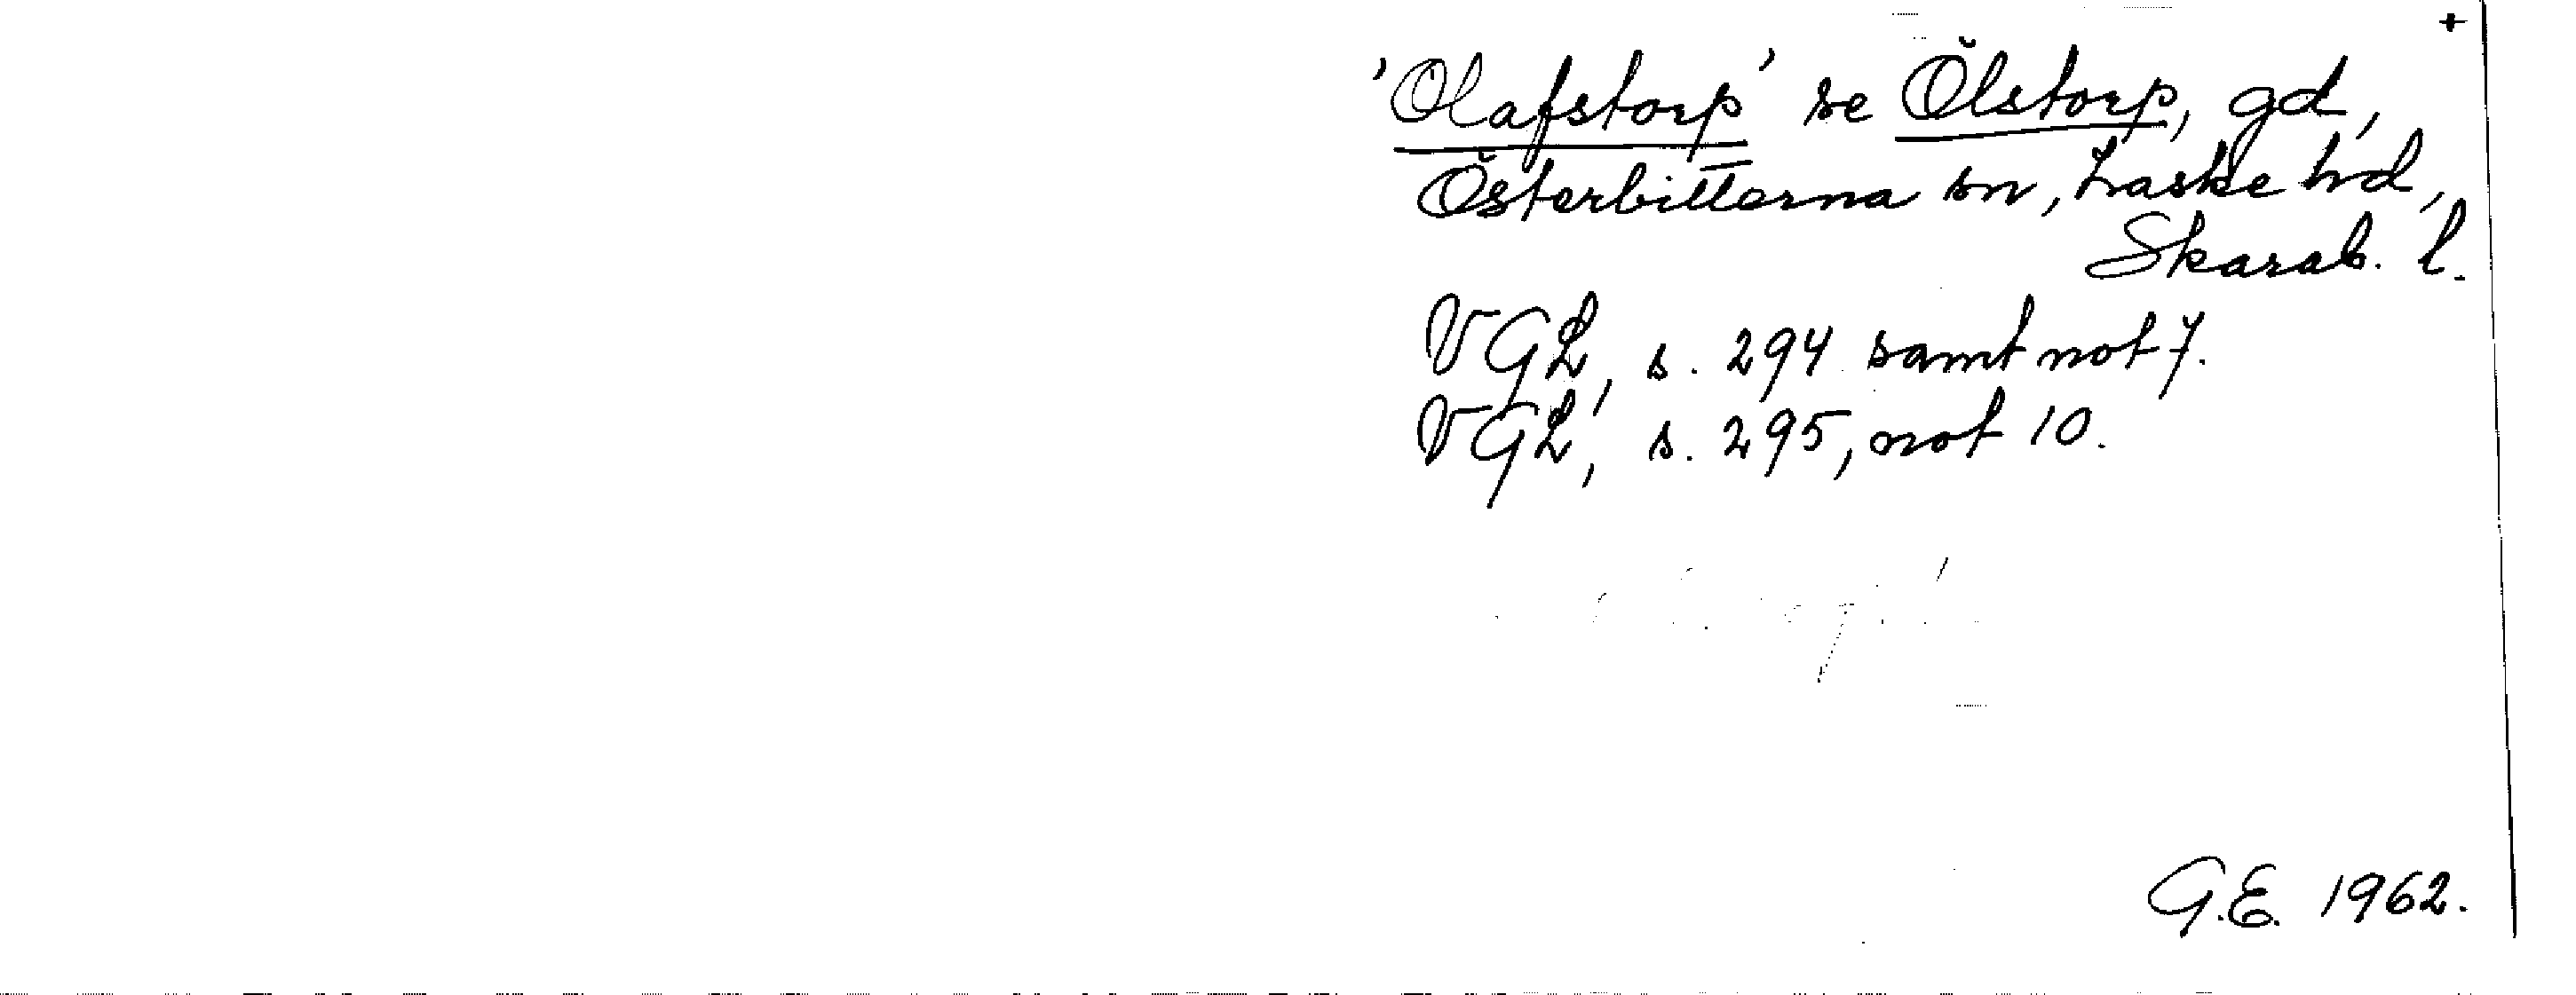 +
'Olafstorp' se Ölstorp, gd,
Österbitterna sn, Laske hd,
Skarab. l.
VGL, s. 294 samt not 7.
VGL, s. 295, not 10.
G.E. 1962.